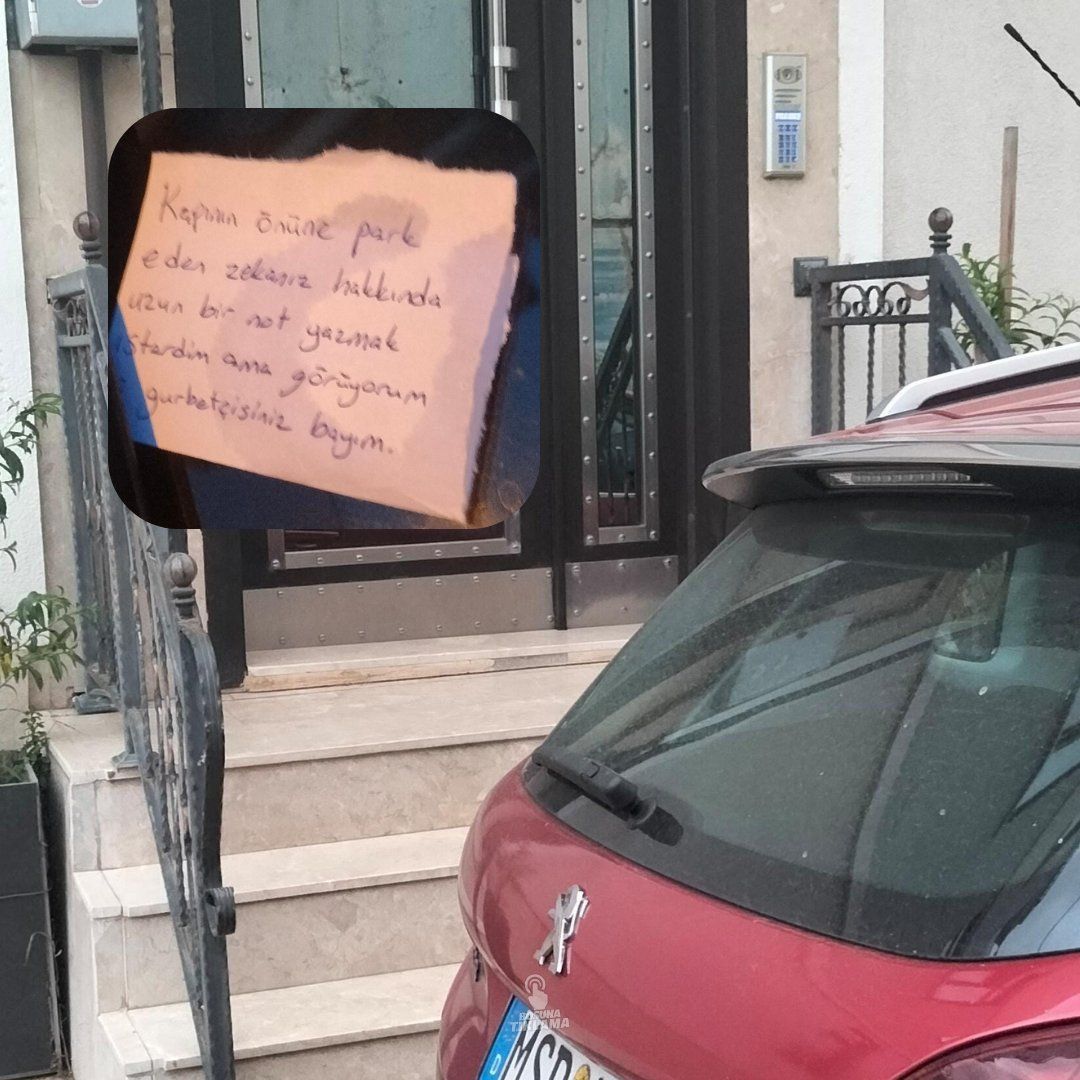 Kapının önüne park
eden zekanız hakkında
uzun bir not yazmak
isterdim ama görüyorum
gurbetçisiniz bayım.
BOŞUNA
TIKLAMA
D